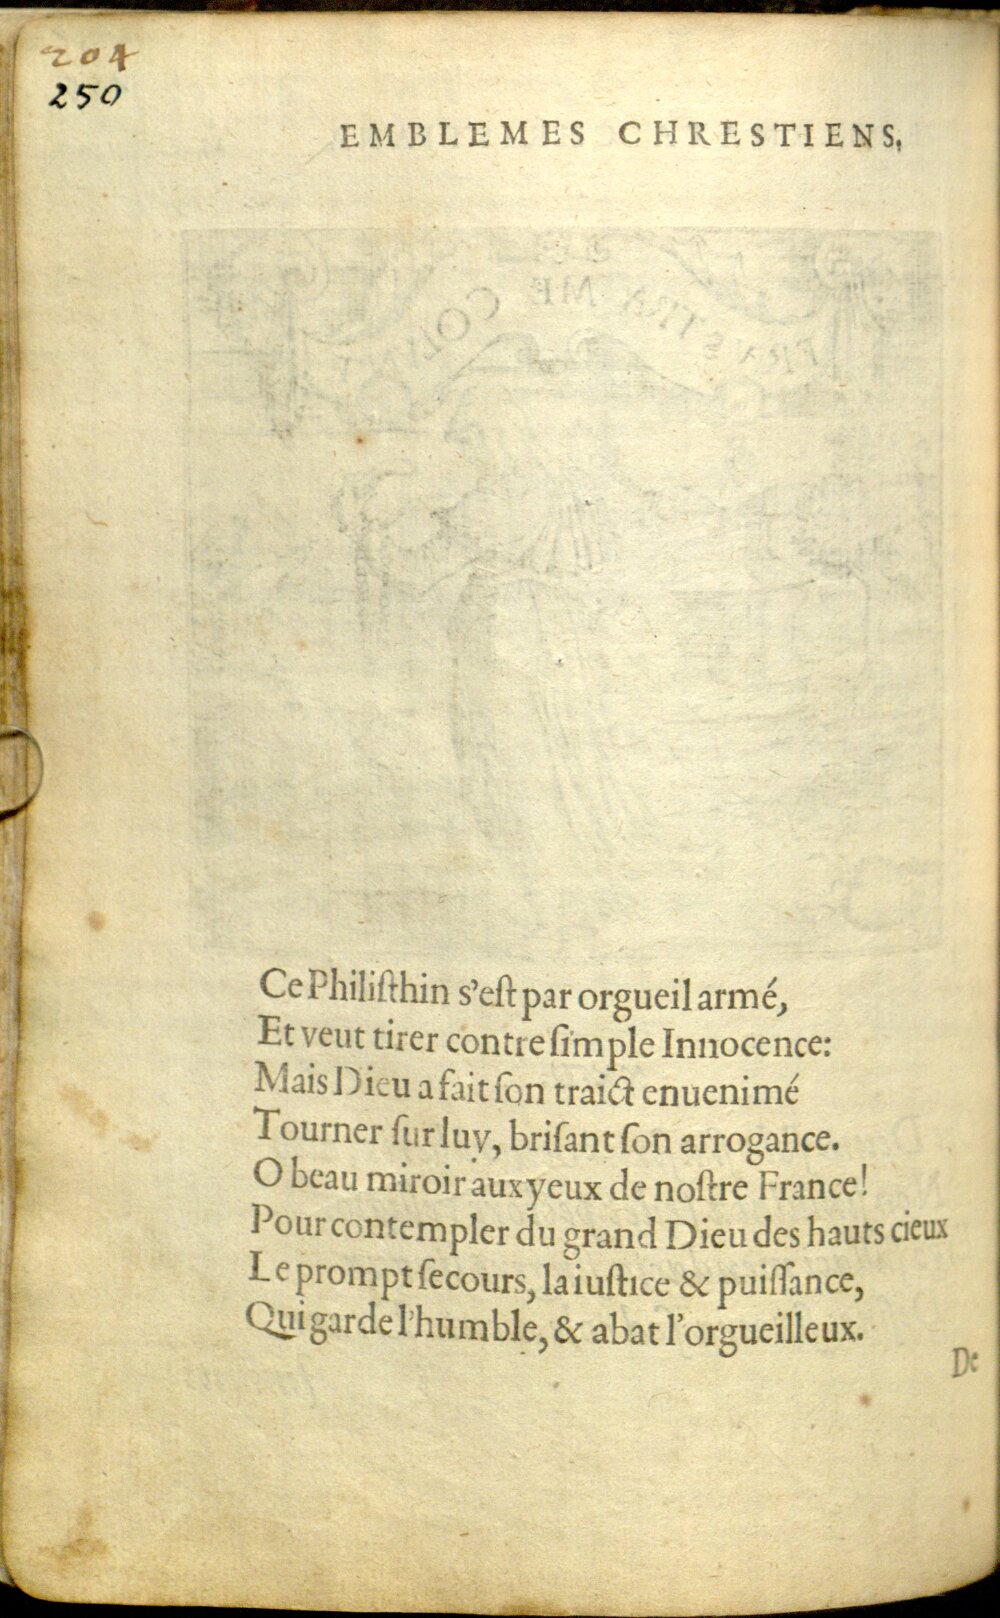 204
250
EMBLEMES CHRESTIENS.
Ce Philiſthin s'eſt par orgueil armé,
Et veut tirer contre ſimple Innocence:
Mais Dieu a fait ſon traict enuenimé
Tourner ſur luy, briſant ſon arrogance.
O beau miroir aux yeux de noſtre France!
Pour contempler du grand Dieu des hauts cieux
Le prompt ſecours, la iuſtice & puiſſance,
Qui garde l'humble, & abat l'orgueilleux.
De